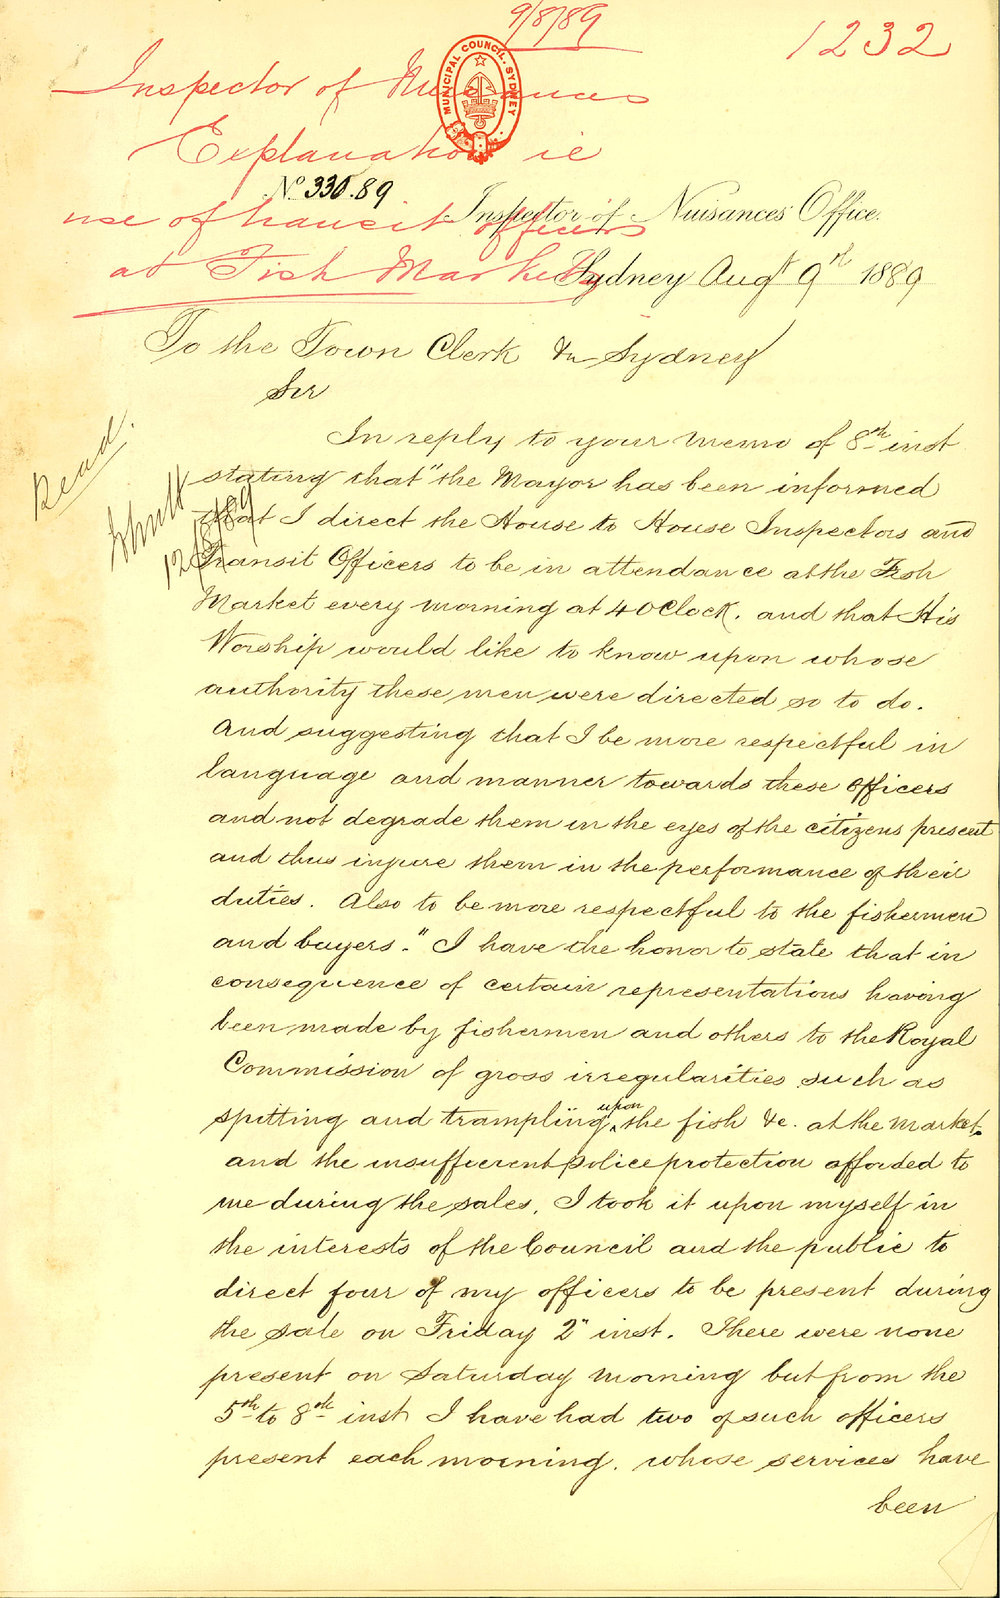 9/8/89
1232
Inspector of Nuisances
Explanation re
use of transit officers
at Fish Markets
MUNICIPAL COUNCIL. SYDNEY
No. 330.89
Inspector of Nuisances Office.
Sydney Augt 9th 1889
To the Town Clerk Sydney
Sir
Read.
12/8/89
In reply to your memo of 8th inst
stating that "the Mayor has been informed
that I direct the House to House Inspectors and
Transit Officers to be in attendance at the Fish
Market every morning at 4 O Clock. and that His
Worship would like to know upon whose
authority these men were directed so to do.
And suggesting that I be more respectful in
language and manner towards these officers
and not degrade them in the eyes of the citizens present
and thus injure them in the performance of their
duties. Also to be more respectful to the fishermen
and buyers." I have the honor to state that in
consequence of certain representations having
been made by fishermen and others to the Royal
Commission of gross irregularities such as
spitting and trampling upon the fish &c. at the market.
and the insufficient police protection afforded to
me during the sales, I took it upon myself in
the interests of the Council and the public to
direct four of my officers to be present during
the sale on Friday 2" inst. There were none
present on Saturday morning but from the
5th to 8th inst I have had two of such officers
present each morning. whose services have
been